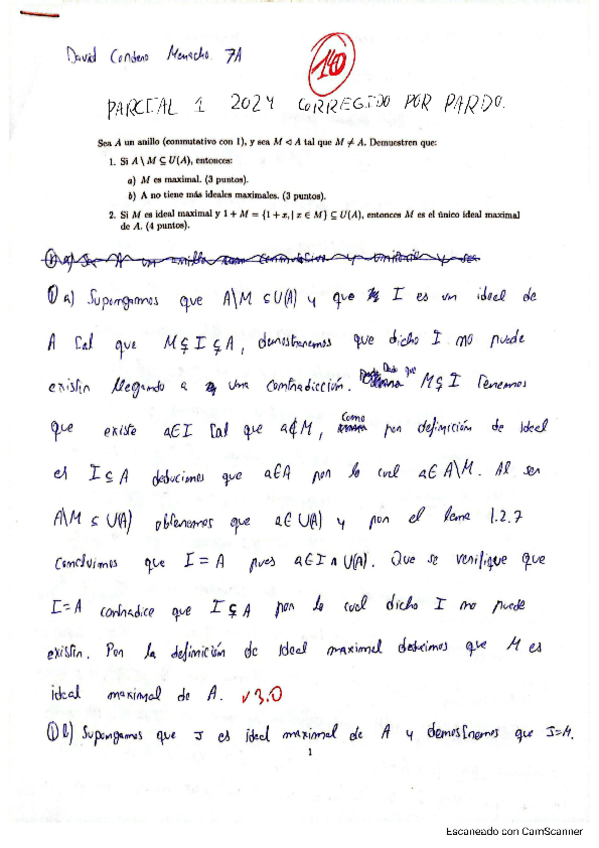 David Cordero Menacho 7A
10
PARCIAL 1 2024 CORREGIDO POR PARDO.
Sea A un anillo (conmutativo con 1), y sea M ◁ A tal que M ≠ A. Demuestren que:
1. Si A \ M ⊆ U(A), entonces:
a) M es maximal. (3 puntos).
b) A no tiene más ideales maximales. (3 puntos).
2. Si M es ideal maximal y 1 + M = {1 + x, | x ∈ M} ⊆ U(A), entonces M es el único ideal maximal
de A. (4 puntos).
① a) Supongamos que A\M ⊆ U(A) y que I es un ideal de
A tal que M ⊊ I ⊊ A, demostraremos que dicho I no puede
existir llegando a una contradicción. Dado que M ⊊ I tenemos
que existe a∈I tal que a∉M, como por definición de ideal
es I ⊆ A deducimos que a∈A por lo cual a∈A\M. Al ser
A\M ⊆ U(A) obtenemos que a∈U(A) y por el lema 1.2.7
concluimos que I = A pues a∈I∩U(A). Que se verifique que
I=A contradice que I ⊊ A por lo cual dicho I no puede
existir. Por la definición de ideal maximal deducimos que M es
ideal maximal de A. √3.0
① b) Supongamos que J es ideal maximal de A y demostremos que J=M.
1
Escaneado con CamScanner